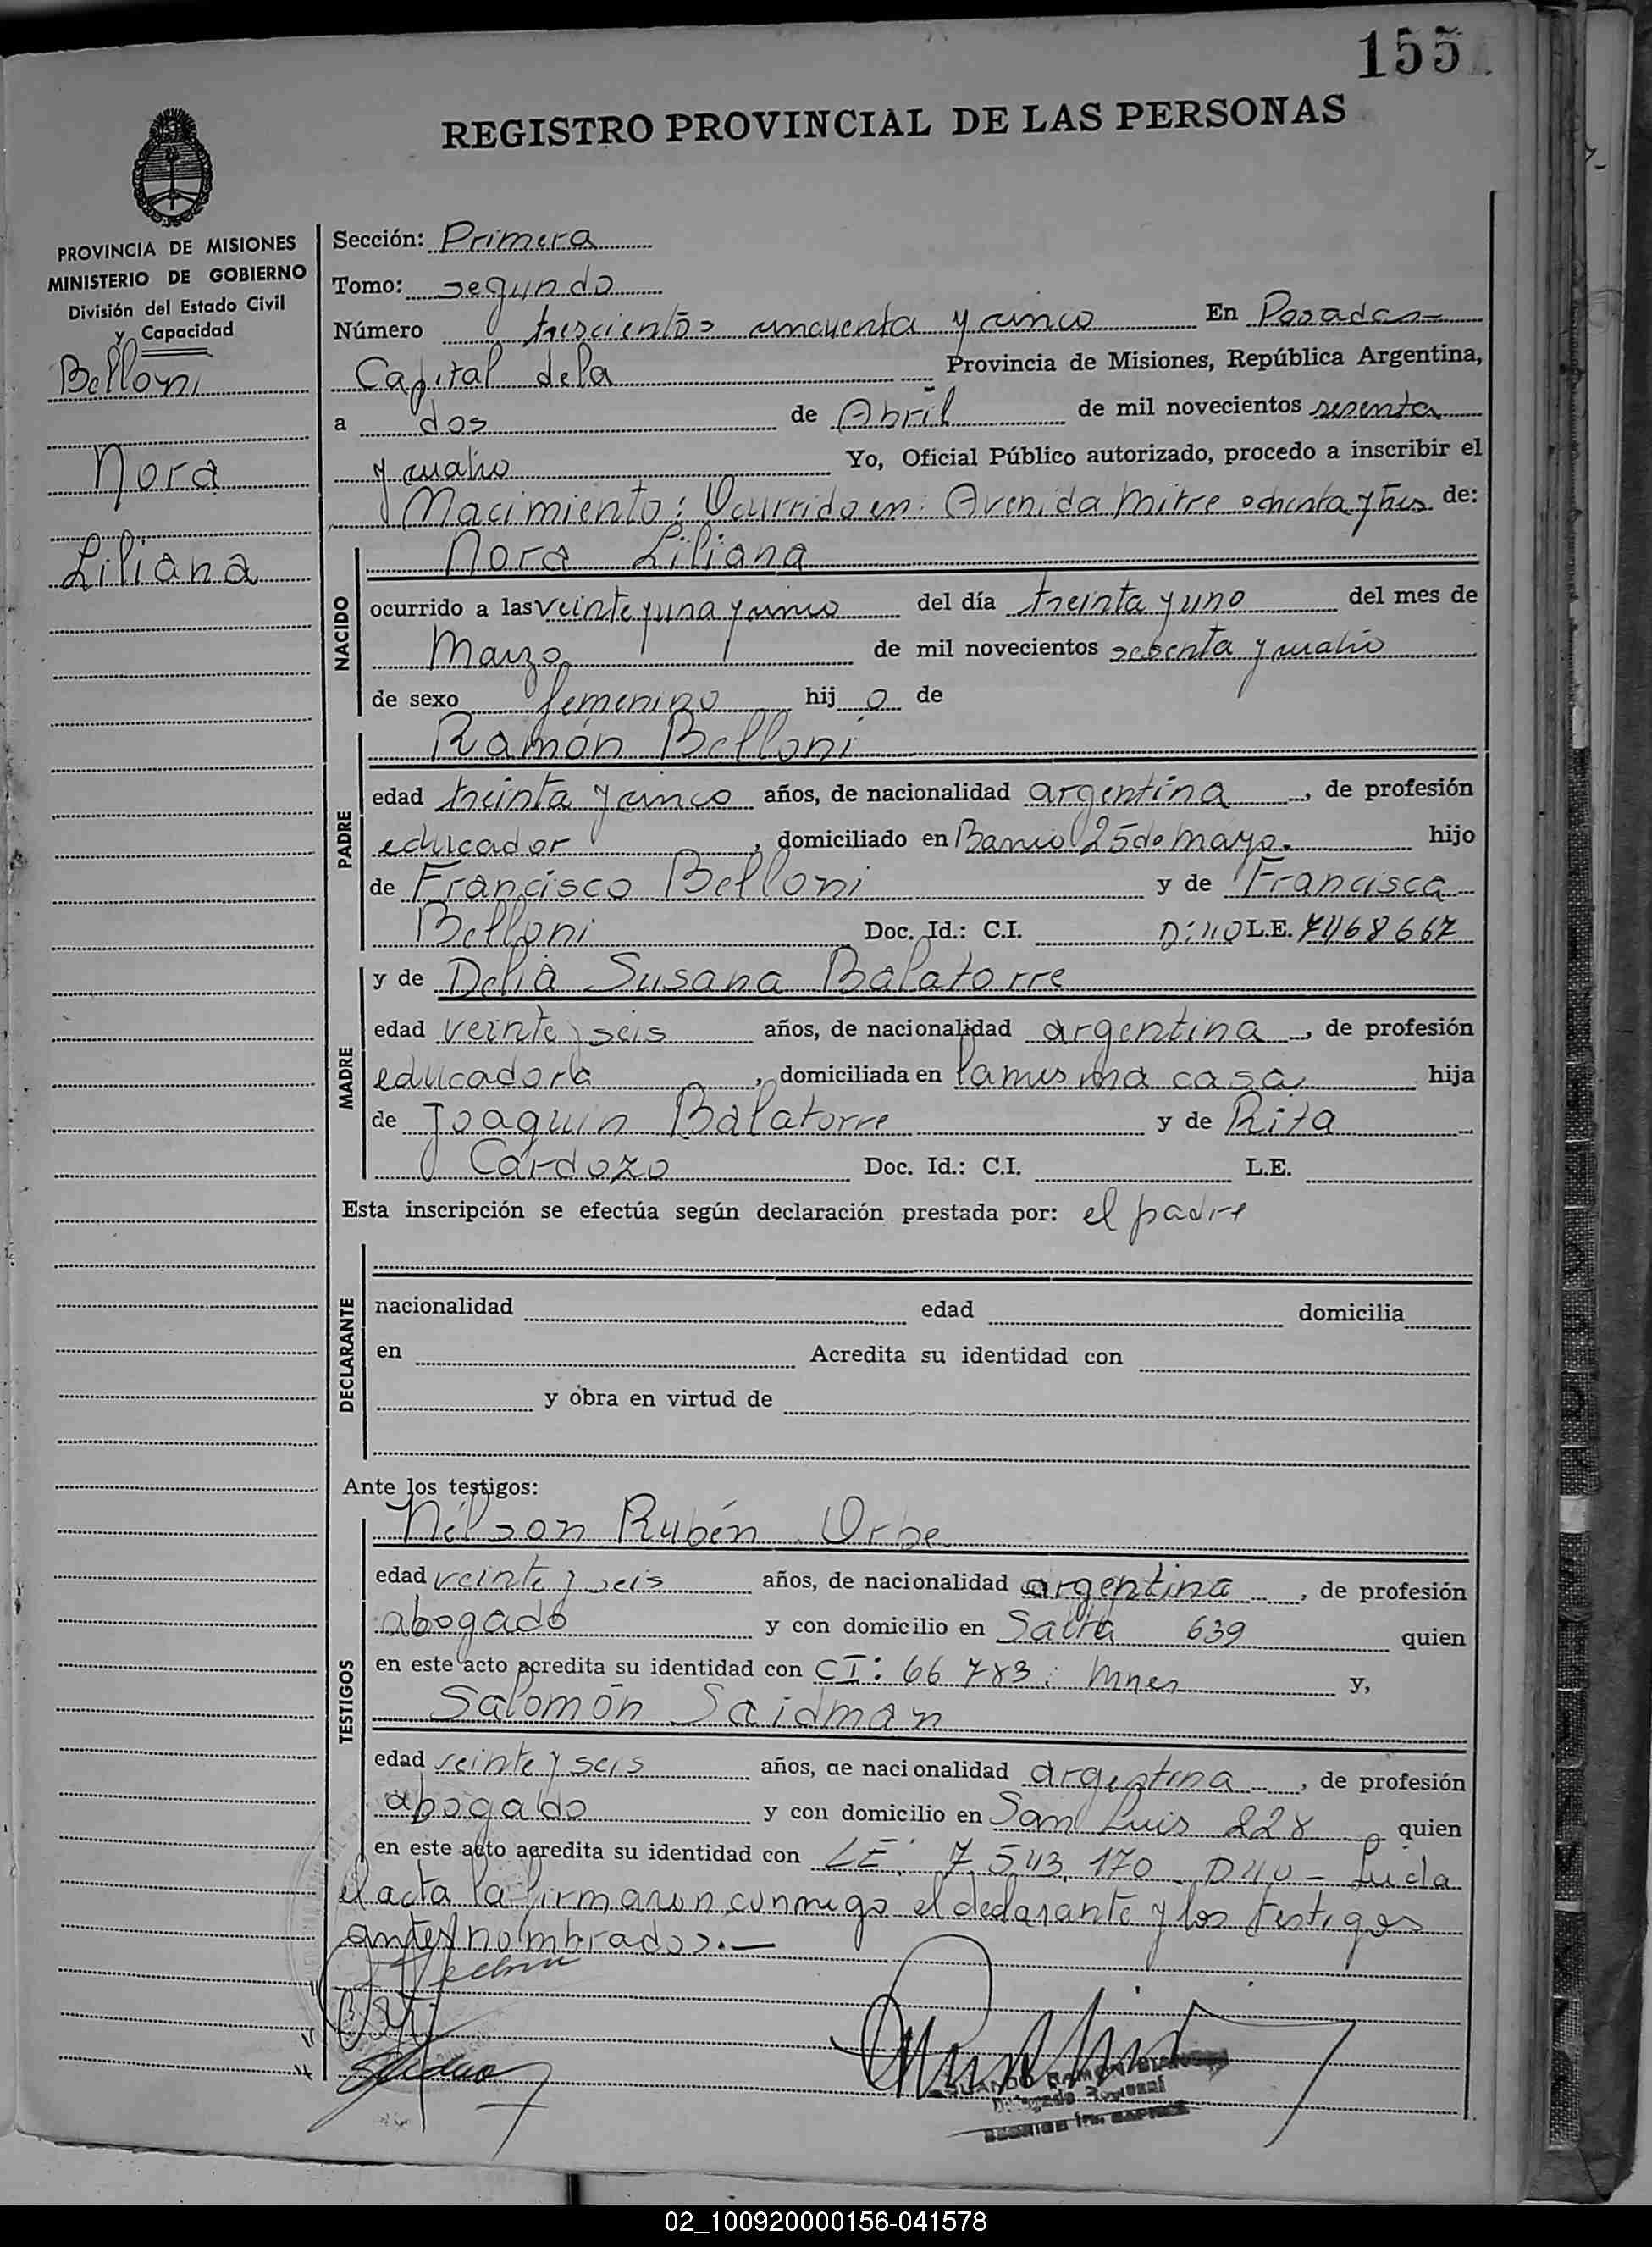 155
REGISTRO PROVINCIAL DE LAS PERSONAS
PROVINCIA DE MISIONES
MINISTERIO DE GOBIERNO
División del Estado Civil
y Capacidad
Belloni
Nora
Liliana
Sección: Primera
Tomo: segundo
Número trescientos cincuenta y cinco En Posadas
Capital de la Provincia de Misiones, República Argentina,
a dos de Abril de mil novecientos sesenta
y cuatro Yo, Oficial Público autorizado, procedo a inscribir el
Nacimiento: Ocurrido en: Avenida Mitre ochenta y tres de:
NACIDO
Nora Liliana
ocurrido a las veinte y una y cinco del día treinta y uno del mes de
Marzo de mil novecientos sesenta y cuatro
de sexo femenino hij o de
PADRE
Ramón Belloni
edad treinta y cinco años, de nacionalidad argentina, de profesión
educador, domiciliado en Barrio 25 de Mayo. hijo
de Francisco Belloni y de Francisca
Belloni Doc. Id.: C.I. D:40 L.E. 7468667
MADRE
y de Delia Susana Balatorre
edad veinte y seis años, de nacionalidad argentina, de profesión
educadora, domiciliada en la misma casa hija
de Joaquin Balatorre y de Rita
Cardozo Doc. Id.: C.I. L.E.
Esta inscripción se efectúa según declaración prestada por: el padre
DECLARANTE
nacionalidad edad domicilia
en Acredita su identidad con
y obra en virtud de
Ante los testigos:
TESTIGOS
Nélson Rubén Orbe
edad veinte y seis años, de nacionalidad argentina, de profesión
abogado y con domicilio en Salta 639 quien
en este acto acredita su identidad con CI: 66783: Mnes y,
Salomón Saidman
edad veinte y seis años, de nacionalidad argentina, de profesión
abogado y con domicilio en San Luis 228 quien
en este acto acredita su identidad con LE: 7.543.170 D40 - Leida
el acta la firmaron conmigo el declarante y los testigos
antes nombrados.—
02_100920000156-041578